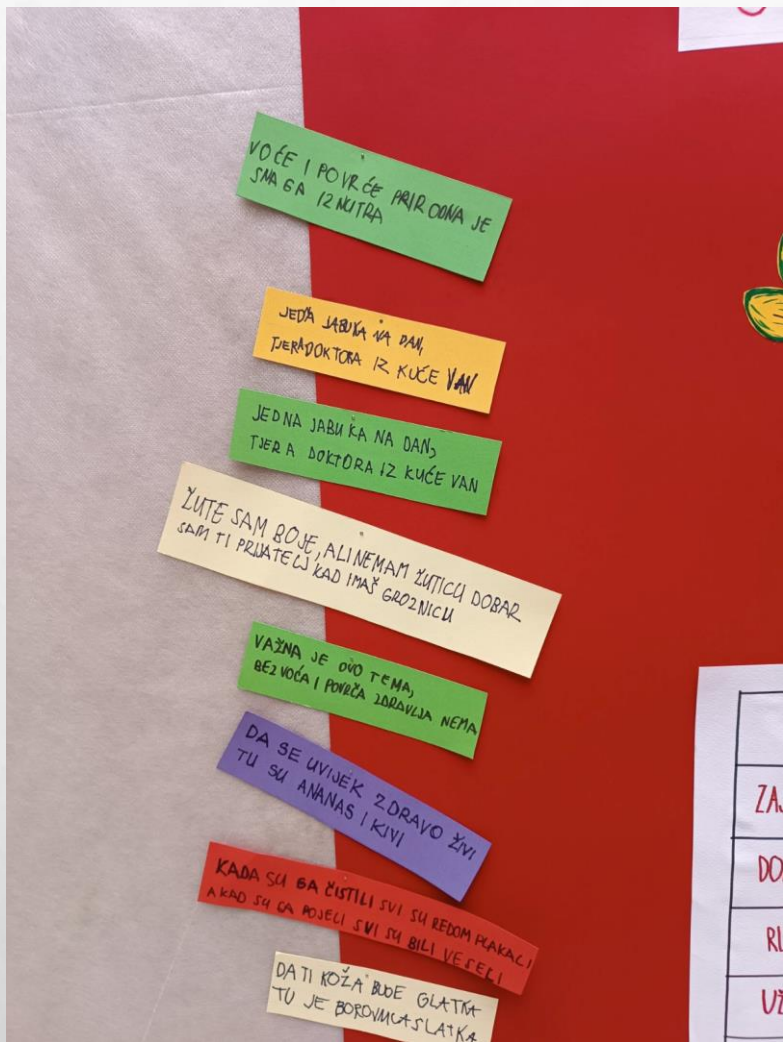 VOĆE I POVRĆE PRIRODNA JE
SNAGA IZNUTRA
JEDNA JABUKA NA DAN,
TJERA DOKTORA IZ KUĆE VAN
JEDNA JABUKA NA DAN,
TJERA DOKTORA IZ KUĆE VAN
ŽUTE SAM BOJE, ALI NEMAM ŽUTICU DOBAR
SAM TI PRIJATELJ KAD IMAŠ GROZNICU
VAŽNA JE OVO TEMA,
BEZ VOĆA I POVRČA ZDRAVLJA NEMA
DA SE UVIJEK ZDRAVO ŽIVI
TU SU ANANAS I KIVI
KADA SU GA ČISTILI SVI SU REDOM PLAKALI
A KAD SU GA POJELI SVI SU BILI VESELI
DA TI KOŽA BUDE GLATKA
TU JE BOROVNICA SLATKA